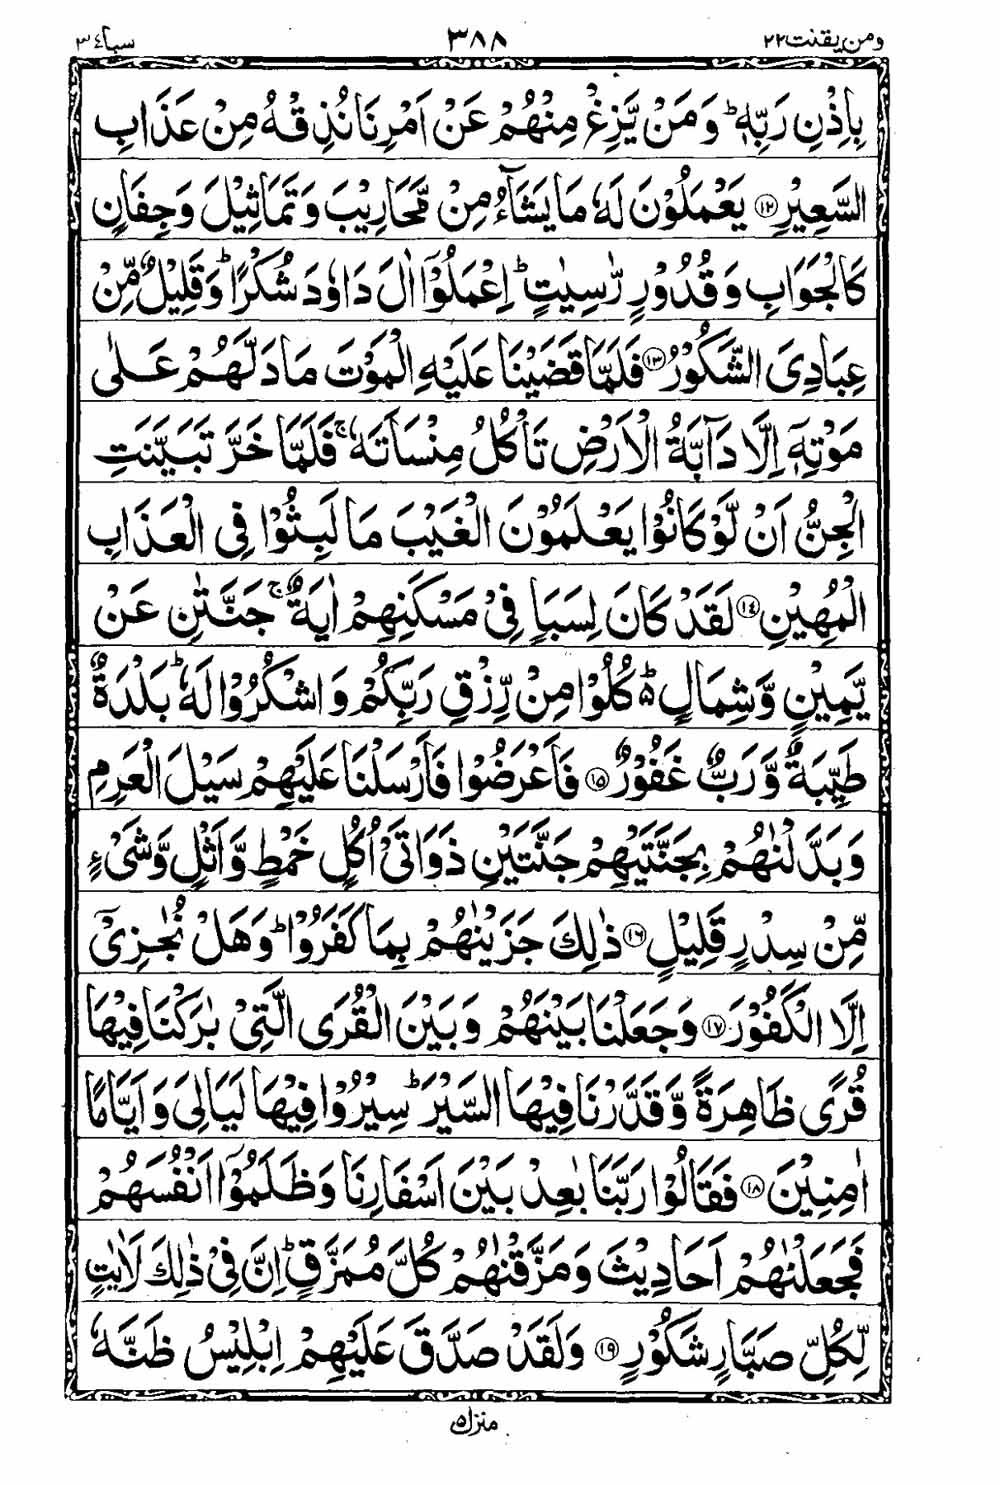 ومن يقنت ٢٢ ٣٨٨ سبا ٣٤
بِاِذْنِ رَبِّهٖ ؕ وَ مَنْ يَّزِغْ مِنْهُمْ عَنْ اَمْرِنَا نُذِقْهُ مِنْ عَذَابِ
السَّعِيْرِ ﴿۱۲﴾ يَعْمَلُوْنَ لَهٗ مَا يَشَآءُ مِنْ مَّحَارِيْبَ وَ تَمَاثِيْلَ وَ جِفَانٍ
كَالْجَوَابِ وَ قُدُوْرٍ رّٰسِيٰتٍ ؕ اِعْمَلُوْۤا اٰلَ دَاوٗدَ شُكْرًا ؕ وَ قَلِيْلٌ مِّنْ
عِبَادِيَ الشَّكُوْرُ ﴿۱۳﴾ فَلَمَّا قَضَيْنَا عَلَيْهِ الْمَوْتَ مَا دَلَّهُمْ عَلٰى
مَوْتِهٖۤ اِلَّا دَآبَّةُ الْاَرْضِ تَاْكُلُ مِنْسَاَتَهٗ ۚ فَلَمَّا خَرَّ تَبَيَّنَتِ
الْجِنُّ اَنْ لَّوْ كَانُوْا يَعْلَمُوْنَ الْغَيْبَ مَا لَبِثُوْا فِي الْعَذَابِ
الْمُهِيْنِ ﴿۱٤﴾ لَقَدْ كَانَ لِسَبَاٍ فِيْ مَسْكَنِهِمْ اٰيَةٌ ۚ جَنَّتٰنِ عَنْ
يَّمِيْنٍ وَّ شِمَالٍ ؕ۬ كُلُوْا مِنْ رِّزْقِ رَبِّكُمْ وَ اشْكُرُوْا لَهٗ ؕ بَلْدَةٌ
طَيِّبَةٌ وَّ رَبٌّ غَفُوْرٌ ﴿۱۵﴾ فَاَعْرَضُوْا فَاَرْسَلْنَا عَلَيْهِمْ سَيْلَ الْعَرِمِ
وَ بَدَّلْنٰهُمْ بِجَنَّتَيْهِمْ جَنَّتَيْنِ ذَوَاتَيْ اُكُلٍ خَمْطٍ وَّ اَثْلٍ وَّ شَيْءٍ
مِّنْ سِدْرٍ قَلِيْلٍ ﴿۱۶﴾ ذٰلِكَ جَزَيْنٰهُمْ بِمَا كَفَرُوْا ؕ وَ هَلْ نُجٰزِيْۤ
اِلَّا الْكَفُوْرَ ﴿۱۷﴾ وَ جَعَلْنَا بَيْنَهُمْ وَ بَيْنَ الْقُرَى الَّتِيْ بٰرَكْنَا فِيْهَا
قُرًى ظَاهِرَةً وَّ قَدَّرْنَا فِيْهَا السَّيْرَ ؕ سِيْرُوْا فِيْهَا لَيَالِيَ وَ اَيَّامًا
اٰمِنِيْنَ ﴿۱۸﴾ فَقَالُوْا رَبَّنَا بٰعِدْ بَيْنَ اَسْفَارِنَا وَ ظَلَمُوْۤا اَنْفُسَهُمْ
فَجَعَلْنٰهُمْ اَحَادِيْثَ وَ مَزَّقْنٰهُمْ كُلَّ مُمَزَّقٍ ؕ اِنَّ فِيْ ذٰلِكَ لَاٰيٰتٍ
لِّكُلِّ صَبَّارٍ شَكُوْرٍ ﴿۱۹﴾ وَ لَقَدْ صَدَّقَ عَلَيْهِمْ اِبْلِيْسُ ظَنَّهٗ
منزل ۵